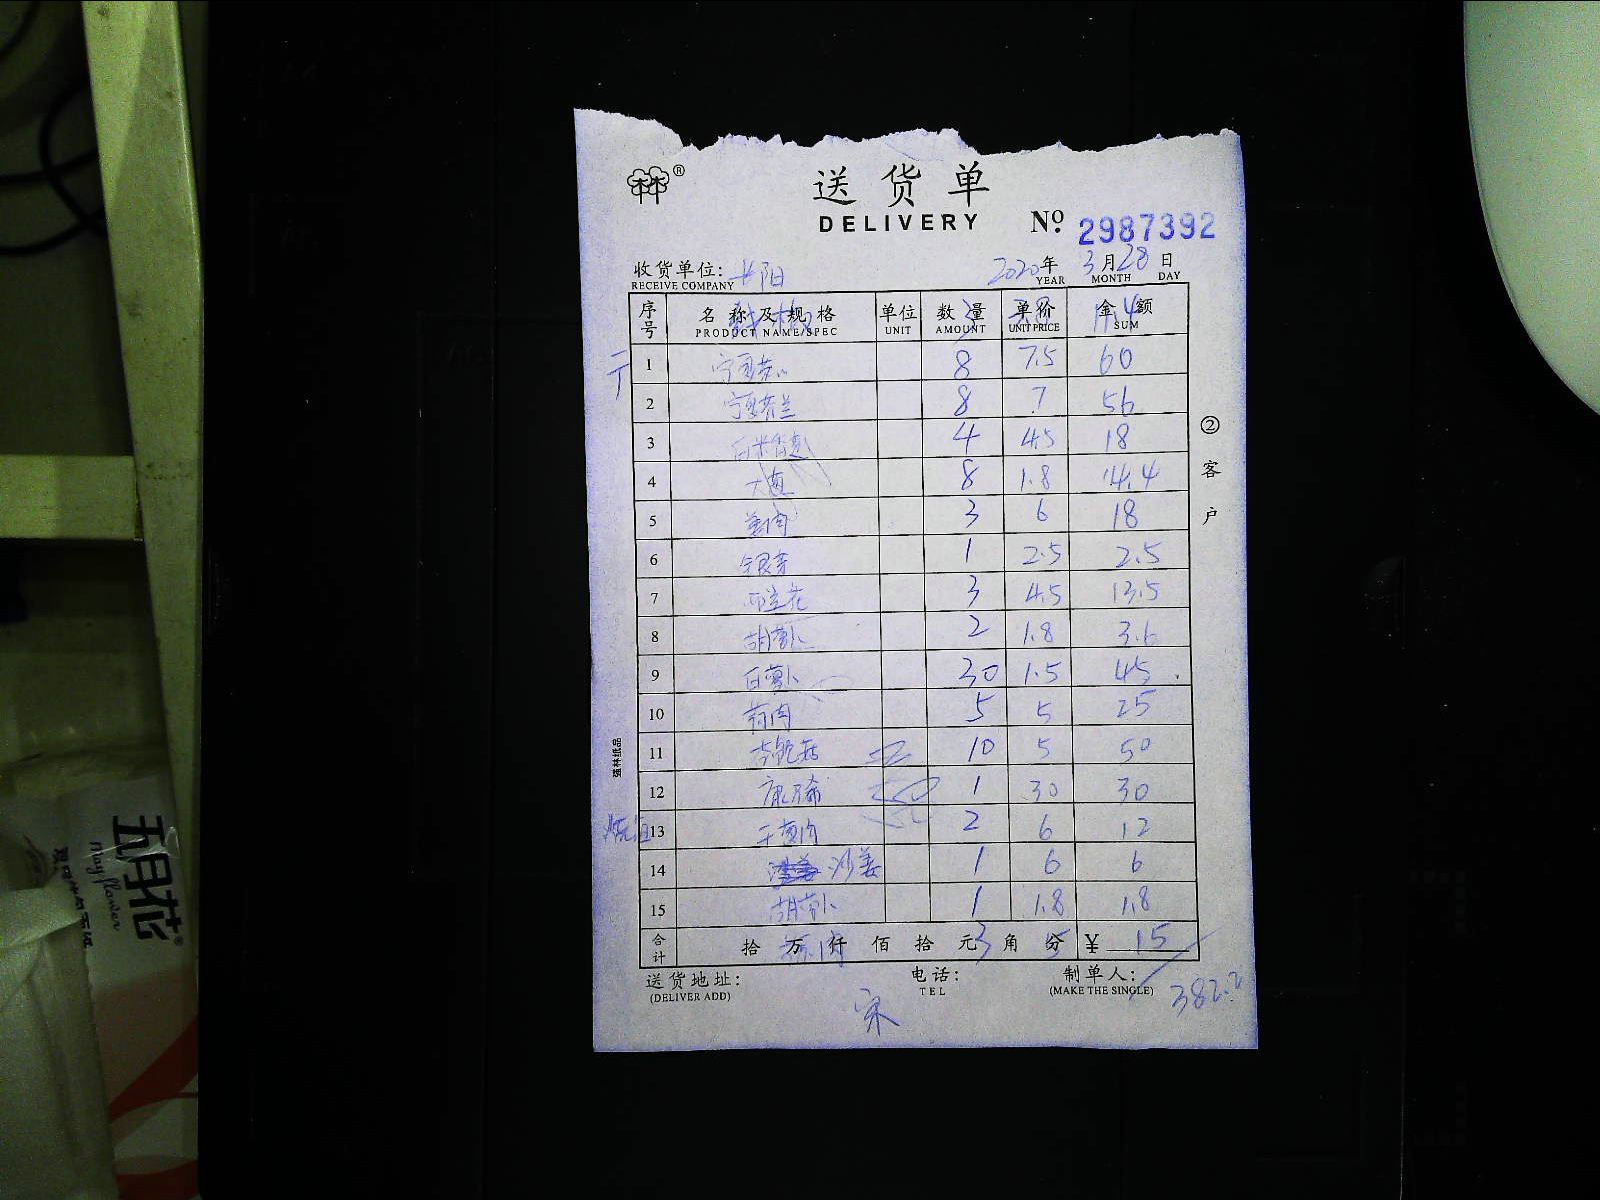 送货单
DELIVERY
№ 2987392
收货单位: 长阳 2020年 3月 28日
RECEIVE COMPANY YEAR MONTH DAY
序号 名称及规格 单位 数量 单价 金额
PRODUCT NAME/SPEC UNIT AMOUNT UNIT PRICE SUM
1 宁夏菜心 8 7.5 60
2 宁夏芥兰 8 7 56
3 4 4.5 18
4 大葱 8 1.8 14.4
5 姜肉 3 6 18
6 银芽 1 2.5 2.5
7 西兰花 3 4.5 13.5
8 胡萝卜 2 1.8 3.6
9 白萝卜 30 1.5 45
10 5 5 25
11 10 5 50
12 1 30 30
13 干葱肉 2 6 12
14 沙姜 1 6 6
15 胡萝卜 1 1.8 1.8
合计 拾 万 仟 佰 拾 元 3 角 5 分 ¥ 15
送货地址: 电话: 制单人:
(DELIVER ADD) TEL (MAKE THE SINGLE) 382.2
宋
②客户
强林纸品
五月花
May flower